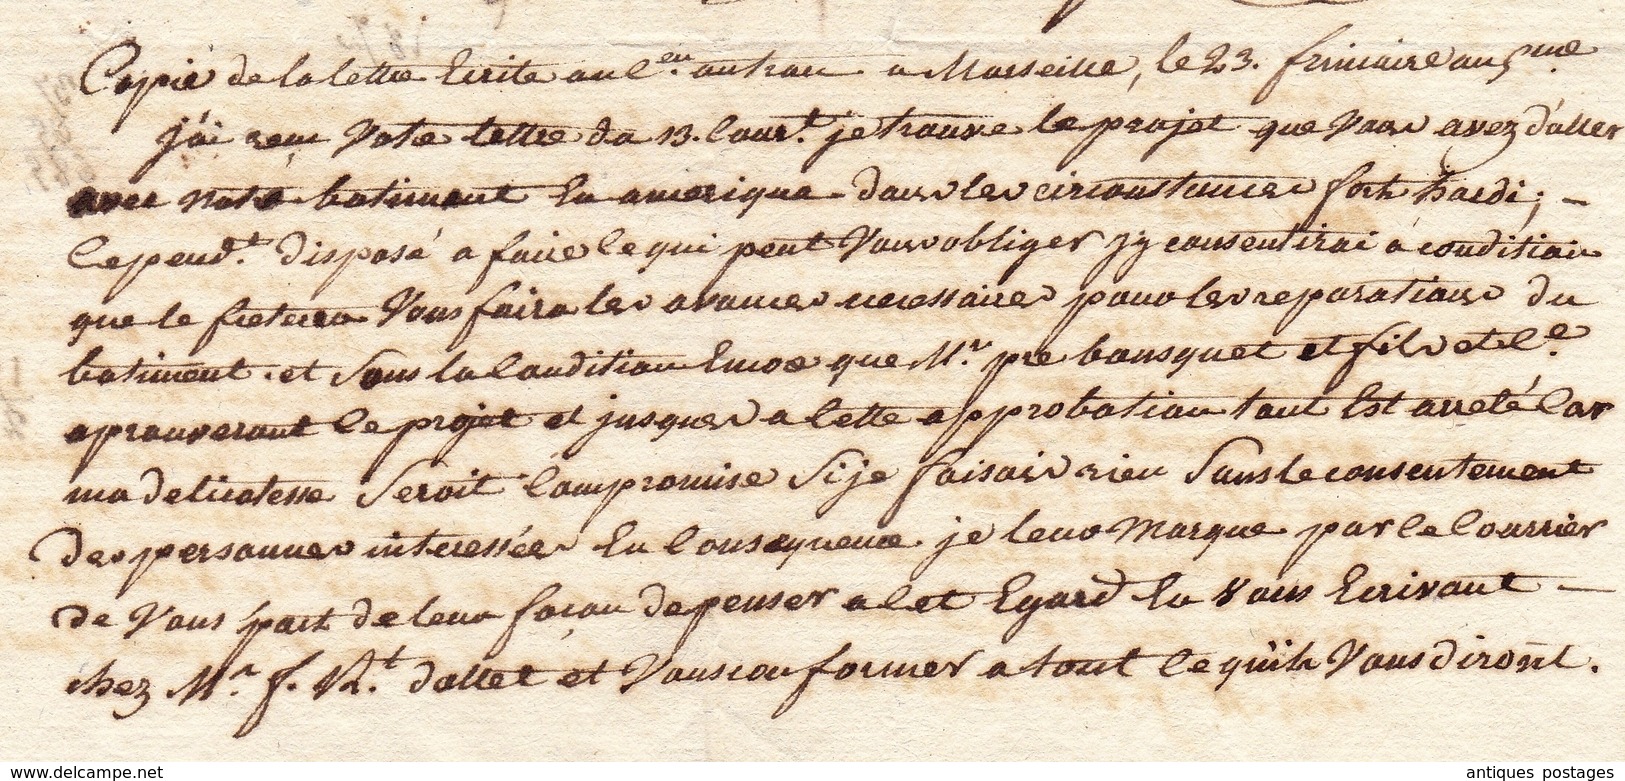 Copie de la lettre Ecrite au Cen. autran a Marseille, le 23. frimaire an 5me
j'ai reçu Votre lettre du 13. Cour.t je trouve le projet que Vous avez d'aller
avec notre batiment En amerique dans les circonstances fort hardi; –
Cepend.t disposé a faire ce qui peut Vous obliger j'y consentirai à condition
que le freteur Vous faira les avances necessaires pour les reparations du
batiment. et sous la Condition Encore que Mr. pre bousquet et fils et Ce.
aprouveront le projet et jusques a cette approbation tout Est arreté Car
ma delicatesse Seroit Compromise Si je faisais rien Sans le consentement
des personnes interessées En Consequence je leur Marque par le Courrier
de Vous part de leur façon de penser a cet Egard En Vous Ecrivant –
chez Mr. f. dallet et Vous conformer a tout ce qu'ils Vous diront.
antiques postages
www.delcampe.net